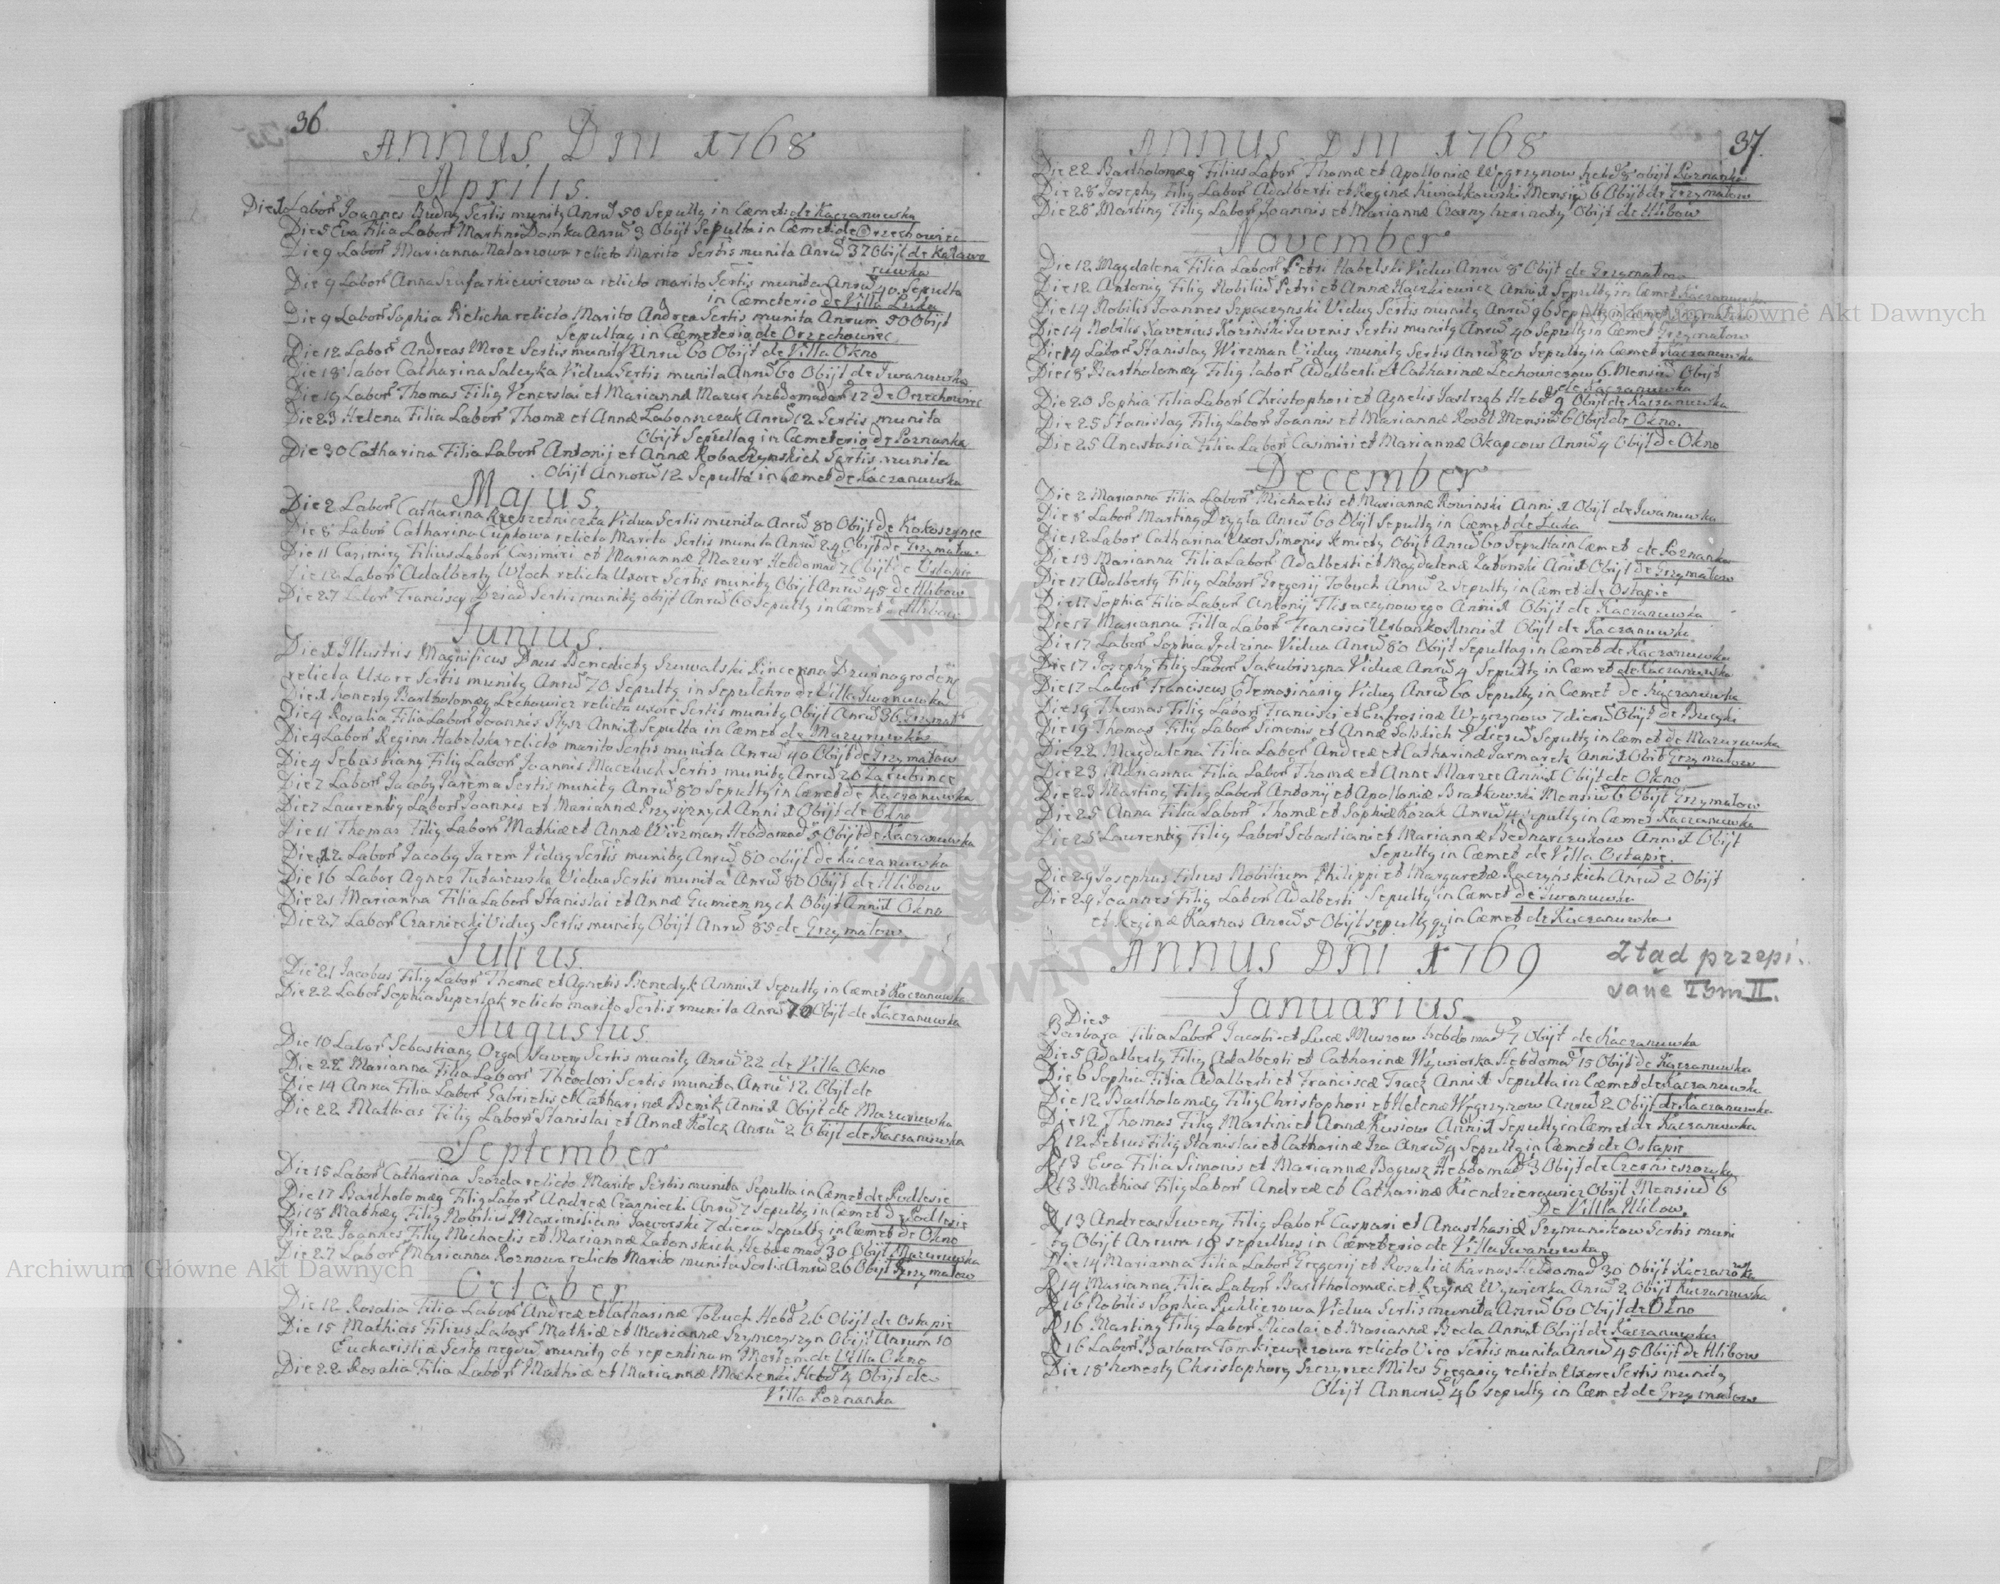 36.
Annus Dni 1768
Aprilis.
Die 1 Labor Joannes Budny Sertis munity Annrũ 50 Sepulty in Cæmet de Kaczanuwka
Die 5 Eva Filia Labor Martini Domka Annrũ 3 Obijt Sepulta in Cæmet de Orzechowiec
Die 9 Labor Marianna Natanowa relicto Marito Sertis munita Annrũ 37 Obijt de Kaławo
ruwka
Die 9 Labor Anna Szafarkiewiczowa relicto marito Sertis munita Annrũ 40. Sepulta
in Cæmeterio de Villa Luka
Die 9 Labor Sophia Relicha relicto Marito Andrea Sertis munita Annum 50 Obijt
Sepultag in Cæmeterio de Orzechowiec
Die 12 Labor Andreas Mroz Sertis munity Annrũ 60 Obijt de Villa Okno
Die 18 Labor Catharina Saleyka Vidua Sertis munita Annrũ 60 Obijt de Iwanuwka
Die 19 Labor Thomas Filig Venceslai et Mariannæ Mazur hebdomadar 12 de Orzechowiec
Die 23 Helena Filia Labor Thomæ et Annæ Labonszczak Annrũ 12 Sertis munita
Obijt Sepultag in Cæmeterio de Poznanka
Die 30 Catharina Filia Labor Antonij et Annæ Robaczynskich Sertis munita
Obijt Annorũ 12 Sepulta in Cæmet de Kaczanuwka
Majus.
Die 2 Labor Catharina Rzeszetniczka Vidua Sertis munita Annrũ 80 Obijt de Kokoszynce
Die 8 Labor Catharina Cupkowa relicto Marito Sertis munita Annrũ 24 Obijt de Grzymałow
Die 11 Cazimiry Filius Labor Casimiri et Mariannæ Mazur Hebdomad 7 Obijt de Ostapie
Die 12 Labor Adalberty Włoch relicta Uxore Sertis munity Obijt Annrũ 45 de Hlibow
Die 27 Labor Francisy Dziad Sertis munity obijt Annrũ 60 Sepulty in Cæmet de Hlibow
Junius.
Die 1 Illustris Magnificus Dnus Benedicty Szuwalski Pincerna Drunnagrodens
relicta Uxore Sertis munity Annrũ 70 Sepulty in Sepulchro de Villa Iwanuwka
Die 1 honesty Bartholomæg Lechowicz relicta uxore Sertis munity Obijt Annrũ 36 Grzymał
Die 4 Rosalia Filia Labor Joannes Slysz Anni 1 Sepulta in Cæmet de Mazuruwka
Die 4 Labor Regina Habelska relicto marito Sertis munita Annrũ 40 Obijt de Grzymałow
Die 4 Sebastiany Filig Labor Joannis Maczuch Sertis munity Annrũ 20 Zarubince
Die 7 Labor Jacoby Jarema Sertis munity Annrũ 80 Sepulty in Cæmet de Kaczanuwka
Die 7 Laurentig Labor Joannes et Mariannæ Przysiznych Anni 1 Obijt de Okno
Die 11 Thomas Filig Labor Mathiæ et Annæ Wirzman Hebdomad 5 Obijt de Kaczanuwka
Die 12 Labor Jacoby Jarem Vidug Sertis munity Annrũ 80 obijt de Kaczanuwka
Die 16 Labor Agnez Tutaiewska Vidua Sertis munita Annrũ 80 Obijt de Hlibow
Die 21 Marianna Filia Labor Stanislai et Annæ Gumiennych Obijt Anni 1 Okno
Die 27 Labor Czarnieckj Vidug Sertis munity Obijt Annrũ 85 de Grzymałow
Julius.
Die 21 Jacobus Filig Labor Thomæ et Agnetis Benedyk Anni 1 Sepulty in Cæmet Kaczanuwka
Die 22 Labor Sophia Superlak relicto marito Sertis munita Annrũ 70 Obijt de Kaczanuwka
Augustus.
Die 10 Labor Sebastiany Orgal Juveny Sertis munity Annrũ 22 de Villa Okno
Die 22 Marianna Filia Labor Theodori Sertis munita Annrũ 12 Obijt de
Die 14 Anna Filia Labor Gabrielis et Catharinæ Benik Anni 1 Obijt de Mazuruwka
Die 22 Mathias Filig Labor Stanislai et Annæ Kołcz Annrũ 2 Obijt de Kaczanuwka
September
Die 15 Labor Catharina Szozda relicto Marito Sertis munita Sepulta in Cæmet de Podlesie
Die 17 Bartholomæg Filig Labor Andreæ Czarniecki Annrũ 7 Sepulty in Cæmet de Podlesie
Die 18 Mathæg Filig Nobilis Maximiliani Jaworski 7 dierũ Sepulty in Cæmet de Okno
Die 22 Joannes Filig Michaelis et Mariannæ Zatonskich Hebdomad 30 Obijt Mazuruwka
Die 27 Labor Marianna Roznowa relicto Marito munita Sertis Annrũ 26 Obijt Grzymałow
October
Die 12 Rosalia Filia Labor Andreæ et Catharinæ Tobuch Hebd 26 Obijt de Ostapie
Die 15 Mathias Filius Labor Mathiæ et Mariannæ Szymczyszyn Obijt Annum 10
Eucharistia Serto negow munity ob repentinum Mortem de Villa Okno
Die 22 Rosalia Filia Labor Mathiæ et Mariannæ Machenu Hebd 4 Obijt de
Villa Poznanka
37.
Annus Dni 1768
Die 22 Bartholomæg Filius Labor Thomæ et Apolloniæ Węgrzynow hebd 8 obijt Poznanka
Die 28 Josephy Filig Labor Adalberti et Reginæ Kwiatkowski Mensiũ 6 Obijt de Grzymałow
Die 28 Marting Filig Labor Joannis et Mariannæ Czarny hesinaty Obijt de Hlibow
November
Die 12 Magdalena Filia Labor Petri Habelski Vidui Annrũ 8 Obijt de Grzymałow
Die 12 Antonig Filig Nobiliũ Petri et Annæ Haczkiewicz Anni 1 Sepulty in Cæmet Kaczanuwka
Die 14 Nobilis Joannes Szpaczynski Vidug Sertis munity Annrũ 96 Sepulty in Cæmet Grzymałow
Die 14 Nobilis Xaverius Kozinski Juvenis Sertis munity Annrũ 40 Sepulty in Cæmet Grzymałow
Die 14 Labor Stanislag Wirzman Vidug munity Sertis Annrũ 80 Sepulty in Cæmet Kaczanuwka
Die 18 Bartholomæg Filig Labor Adalberti et Catharinæ Lechowiczow 6 Mensiũ Obijt
de Kaczanuwka
Die 20 Sophia Filia Labor Christophori et Agnetis Jastrząb Hebd 9 Obijt de Kaczanuwka
Die 25 Stanislag Filig Labor Joannis et Mariannæ Kosol Mensiũ 6 Obijt de Okno.
Die 25 Anastasia Filia Labor Casimiri et Mariannæ Okapcow Annrũ 4 Obijt de Okno
December
Die 2 Marianna Filia Labor Michaelis et Mariannæ Rowinski Anni 1 Obijt de Iwanuwka
Die 8 Labor Marting Drygła Annrũ 60 Obijt Sepulty in Cæmet de Łuka
Die 12 Labor Catharina Uxor Simonis Kmiety Obijt Annrũ 60 Sepulta in Cæmet de Poznanka
Die 13 Marianna Filia Labor Adalberti et Magdalenæ Zatonski Ani 1 Obijt de Grzymałow
Die 17 Adalberty Filig Labor Gregorij Tobuch Annrũ 2 Sepulty in Cæmet de Ostapie
Die 17 Sophia Filia Labor Antonij Flisaczynowego Anni 1 Obijt de Kaczanuwka
Die 17 Marianna Filia Labor Francisci Urbanko Anni 1 Obijt de Kaczanuwka
Die 17 Labor Sophia Jedzina Vidua Annrũ 80 Obijt Sepultag in Cæmet de Kaczanuwka
Die 17 Josephy Filig Labor Jakubiszyna Viduæ Annrũ 4 Sepulty in Cæmet de Kaczanuwka
Die 17 Labor Franciscus Elemosinarig Vidug Annrũ 60 Sepulty in Cæmet de Kaczanuwka
Die 19 Thomas Filig Labor Franciski et Eufrosinæ Węgrzynow 7 dierũ Obijt de Bucyki
Die 19 Thomas Filig Labor Simonis et Annæ Solskich 7 dierũ Sepulty in Cæmet de Mazuruwka
Die 22 Magdalena Filia Labor Andreæ et Catharinæ Jarmarek Anni 1 Obijt Grzymałow
Die 23 Marianna Filia Labor Thomæ et Anne Marzec Anni 1 Obijt de Okno
Die 23 Marting Filig Labor Antonj et Apolloniæ Bratkowski Mensiũ 6 Obijt Grzymałow
Die 25 Anna Filia Labor Thomæ et Sophiæ Kozak Annrũ 4 Sepulty in Cæmet Kaczanuwka
Die 25 Laurentig Filig Labor Sebastiani et Mariannæ Bednarczukow Anni 1 Obijt
Sepulty in Cæmet de Villa Ostapie.
Die 29 Josephus Filius Nobilium Philippi et Margaretæ Raczyńskich Annrũ 2 Obijt
Sepulty in Cæmet de Iwanuwka
Die 29 Joannes Filig Labor Adalberti
et Reginæ Karnas Annrũ 5 Obijt sepultg in Cæmet de Kaczanuwka
Annus Dni 1769
Ztąd przepi-
sane Tom II.
Januarius.
Die 5
Barbara Filia Labor Jacobi et Lucæ Muszow hebdomad 7 Obijt de Kaczanuwka
Die 5 Adalberty Filig Adalberti et Catharinæ Wywiorka Hebdomad 15 Obijt de Kaczanuwka
Die 6 Sophia Filia Adalberti et Franciscæ Tracz Anni 1 Sepulta in Cæmet de Kaczanuwka
Die 12 Bartholomæg Filig Christophori et Helenæ Węgrzynow Annrũ 2 Obijt de Kaczanuwka
Die 12 Thomas Filig Martini et Annæ Kusiow Anni 1 Sepulty in Cæmet de Kaczanuwka
D 12 Petrus Filig Stanislai et Catharinæ Iza Annrũ 4 Sepulty in Cæmet de Ostapie
D 13 Eva Filia Simonis et Mariannæ Bogusz Hebdomad 3 Obijt de Czernieszowka
D 13 Mathias Filig Labor Andreæ et Catharinæ Kiendzierawicz Obijt Mensiũ 6
De Villa Hlibow.
D 13 Andreas Juveny Filig Labor Caspari et Anasthasiæ Szymanikow Sertis muni
tg Obijt Annum 18 sepultus in Cæmeterio de Villa Iwanuwka
Die 14 Marianna Filia Labor Gregorij et Rosaliæ Karnas Hebdomad 30 Obijt Kaczanuwka
D 14 Marianna Filia Labor Bartholomæi et Reginæ Wywiorka Annrũ 2 Obijt Kaczanuwka
D 16 Nobilis Sophia Puklierowa Vidua Sertis munita Annrũ 60 Obijt de Okno
D 16 Marting Filig Labor Nicolai et Mariannæ Becla Anni 1 Obijt de Kaczanuwka
D 16 Labor Barbara Tomkiewiczowa relicto Viro Sertis munita Annrũ 45 Obijt de Hlibow
Die 18 honesty Christophory Szczyrzec Miles Gregarig relicta Uxore Sertis munity
Obijt Annorũ 46 sepulty in Cæmet de Grzymałow
Archiwum Główne Akt Dawnych
Archiwum Główne Akt Dawnych
ARCHIWUM GŁÓWNE AKT DAWNYCH